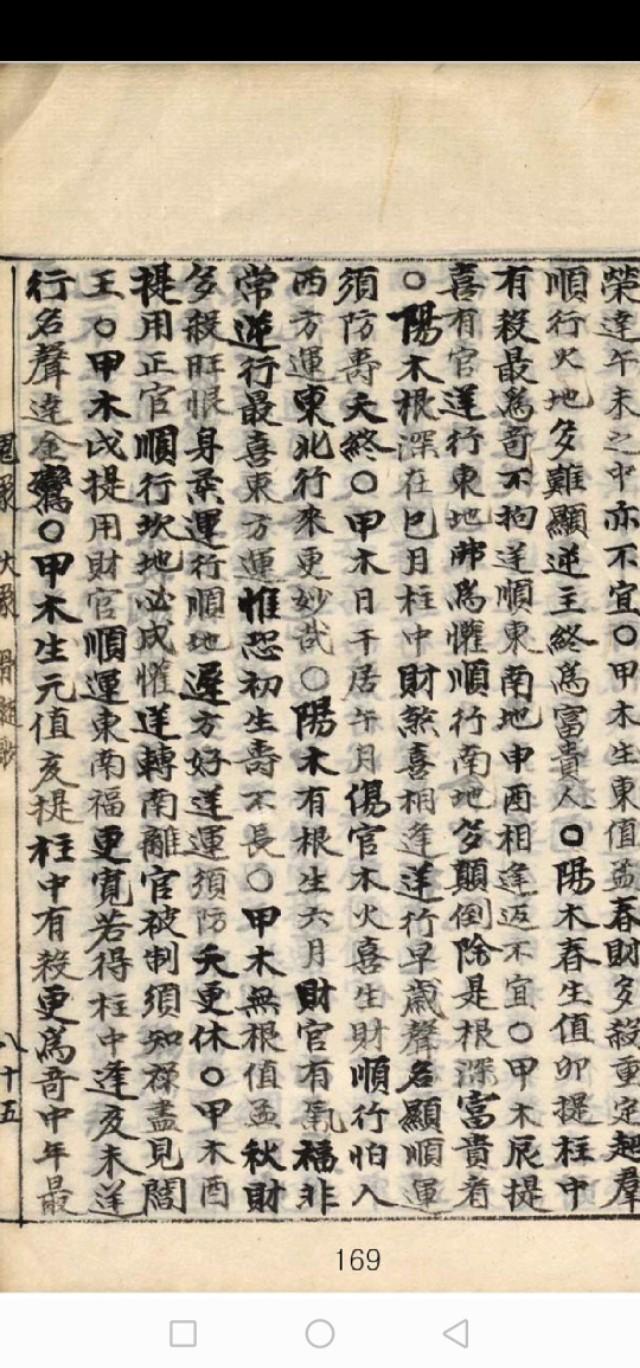 榮達午未之中亦不宜○甲木生東值孟春財多殺重定越羣
順行火地多難顯逆主終爲富貴人○陽木春生值卯提柱中
有殺最爲奇不拘逆順東南地申酉相逢返不宜○甲木辰提
喜有官逆行東地郷爲懽順行南地多顛倒除是根深富貴者
○陽木根深在巳月柱中財煞喜相逢逆行早歲聲名顯順運
須防壽夭終○甲木日干居午月傷官木火喜生財順行怕入
西方運東北行來更妙哉○陽木有根生六月財官有氣福非
常逆行最喜東方運惟恐初生壽不長○甲木無根值孟秋財
多殺旺恨身柔運行順地遲方好逆運須防夭更休○甲木酉
提用正官順行坎地必成懽逆轉南離官被制須知祿盡見閻
王○甲木戌提用財官順運東南福更寬若得柱中逢亥未逆
行名聲達金鸞○甲木生元值亥提柱中有殺更爲奇中年最
大 骨髓歌 八十五
169